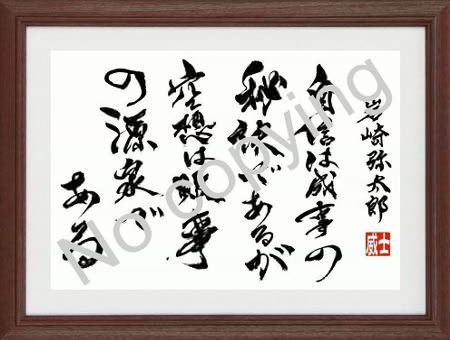 岩崎弥太郎
自信は成事の
秘訣であるが
空想は敗事
の源泉で
ある
威士
No copying